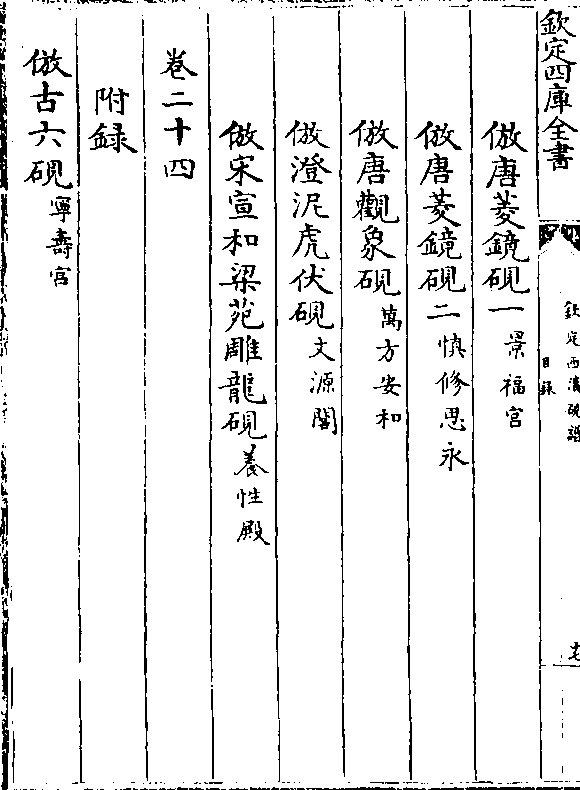 欽定四庫全書
欽定西清硯譜
目錄
倣唐菱鏡硯一景福宮
倣唐菱鏡硯二慎修思永
倣唐觀象硯萬方安和
倣澄泥虎伏硯文源閣
倣宋宣和梁苑雕龍硯養性殿
卷二十四
附録
倣古六硯寧壽宮